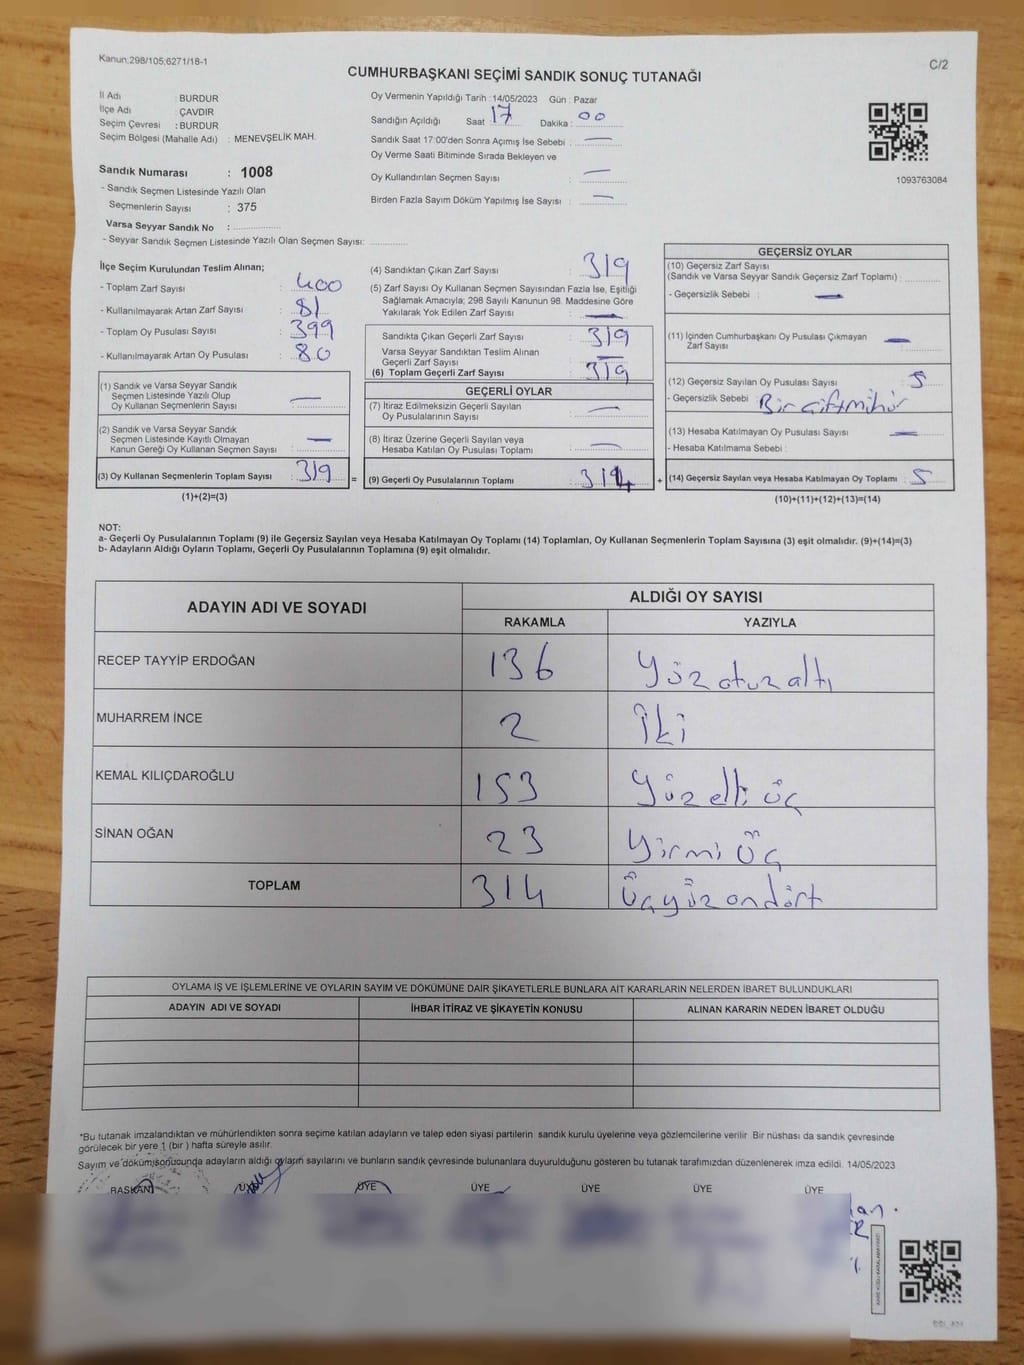 Kanun;298/105;6271/18-1
C/2
CUMHURBAŞKANI SEÇİMİ SANDIK SONUÇ TUTANAĞI
İl Adı : BURDUR
İlçe Adı : ÇAVDIR
Seçim Çevresi : BURDUR
Seçim Bölgesi (Mahalle Adı) : MENEVŞELİK MAH.
Oy Vermenin Yapıldığı Tarih : 14/05/2023 Gün : Pazar
Sandığın Açıldığı Saat 17 Dakika : 00
Sandık Saat 17:00'den Sonra Açımış İse Sebebi : —
Oy Verme Saati Bitiminde Sırada Bekleyen ve
Oy Kullandırılan Seçmen Sayısı : —
Birden Fazla Sayım Döküm Yapılmış İse Sayısı : —
1093763084
Sandık Numarası : 1008
- Sandık Seçmen Listesinde Yazılı Olan
Seçmenlerin Sayısı : 375
Varsa Seyyar Sandık No :
- Seyyar Sandık Seçmen Listesinde Yazılı Olan Seçmen Sayısı:
İlçe Seçim Kurulundan Teslim Alınan;
- Toplam Zarf Sayısı : 400
- Kullanılmayarak Artan Zarf Sayısı : 81
- Toplam Oy Pusulası Sayısı : 399
- Kullanılmayarak Artan Oy Pusulası : 80
(1) Sandık ve Varsa Seyyar Sandık
Seçmen Listesinde Yazılı Olup
Oy Kullanan Seçmenlerin Sayısı : —
(2) Sandık ve Varsa Seyyar Sandık
Seçmen Listesinde Kayıtlı Olmayan
Kanun Gereği Oy Kullanan Seçmen Sayısı : —
(3) Oy Kullanan Seçmenlerin Toplam Sayısı : 319
(1)+(2)=(3)
(4) Sandıktan Çıkan Zarf Sayısı : 319
(5) Zarf Sayısı Oy Kullanan Seçmen Sayısından Fazla İse, Eşitliği
Sağlamak Amacıyla; 298 Sayılı Kanunun 98. Maddesine Göre
Yakılarak Yok Edilen Zarf Sayısı : —
Sandıkta Çıkan Geçerli Zarf Sayısı : 319
Varsa Seyyar Sandıktan Teslim Alınan
Geçerli Zarf Sayısı : —
(6) Toplam Geçerli Zarf Sayısı : 319
GEÇERLİ OYLAR
(7) İtiraz Edilmeksizin Geçerli Sayılan
Oy Pusulalarının Sayısı : —
(8) İtiraz Üzerine Geçerli Sayılan veya
Hesaba Katılan Oy Pusulası Toplamı : —
= (9) Geçerli Oy Pusulalarının Toplamı : 314
GEÇERSİZ OYLAR
(10) Geçersiz Zarf Sayısı
(Sandık ve Varsa Seyyar Sandık Geçersiz Zarf Toplamı) :
- Geçersizlik Sebebi : —
(11) İçinden Cumhurbaşkanı Oy Pusulası Çıkmayan
Zarf Sayısı : —
(12) Geçersiz Sayılan Oy Pusulası Sayısı : 5
- Geçersizlik Sebebi : Bir çift mühür
(13) Hesaba Katılmayan Oy Pusulası Sayısı : —
- Hesaba Katılmama Sebebi :
+ (14) Geçersiz Sayılan veya Hesaba Katılmayan Oy Toplamı : 5
(10)+(11)+(12)+(13)=(14)
NOT:
a- Geçerli Oy Pusulalarının Toplamı (9) ile Geçersiz Sayılan veya Hesaba Katılmayan Oy Toplamı (14) Toplamları, Oy Kullanan Seçmenlerin Toplam Sayısına (3) eşit olmalıdır. (9)+(14)=(3)
b- Adayların Aldığı Oyların Toplamı, Geçerli Oy Pusulalarının Toplamına (9) eşit olmalıdır.
ADAYIN ADI VE SOYADI
ALDIĞI OY SAYISI
RAKAMLA YAZIYLA
RECEP TAYYİP ERDOĞAN 136 Yüz otuz altı
MUHARREM İNCE 2 İki
KEMAL KILIÇDAROĞLU 153 Yüz elli üç
SİNAN OĞAN 23 Yirmi Üç
TOPLAM 314 Üçyüz ondört
OYLAMA İŞ VE İŞLEMLERİNE VE OYLARIN SAYIM VE DÖKÜMÜNE DAİR ŞİKAYETLERLE BUNLARA AİT KARARLARIN NELERDEN İBARET BULUNDUKLARI
ADAYIN ADI VE SOYADI İHBAR İTİRAZ VE ŞİKAYETİN KONUSU ALINAN KARARIN NEDEN İBARET OLDUĞU
*Bu tutanak imzalandıktan ve mühürlendikten sonra seçime katılan adayların ve talep eden siyasi partilerin sandık kurulu üyelerine veya gözlemcilerine verilir. Bir nüshası da sandık çevresinde
görülecek bir yere 1 (bir ) hafta süreyle asılır.
Sayım ve dökümü sonucunda adayların aldığı oyların sayılarını ve bunların sandık çevresinde bulunanlara duyurulduğunu gösteren bu tutanak tarafımızdan düzenlenerek imza edildi. 14/05/2023
BAŞKAN ÜYE ÜYE ÜYE ÜYE ÜYE ÜYE